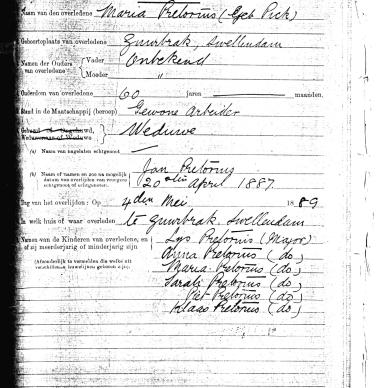 van den overledene Maria Pretorius (Geb Pick)
Geboorteplaats van overledene Zuurbrak, Swellendam
Namen der Ouders van overledene { Vader Onbekend
Moeder "
Ouderdom van overledene 60 jaren maanden.
Stand in de Maatschappij (beroep) Gewone Arbeider
Gehuwd of Ongehuwd, Weduwnaar of Weduwe Weduwe
(a) Naam van nagelaten echtgenoot —
(b) Naam of namen en zoo na mogelijk datum van overlijden van vroegere echtgenoot of echtgenooten. Jan Pretorius
20 April 1887.
Dag van het overlijden: Op 4den Mei 1889
In welk huis of waar overleden te Zuurbrak, Swellendam
Namen van de Kinderen van overledene, en of zij meerderjarig of minderjarig zijn
(Afzonderlijk te vermelden die welke uit verschillende huwelijken geboren zijn.)
Pretorius (Major)
Anna Pretorius (do)
Maria Pretorius (do)
Sarah Pretorius (do)
Piet Pretorius (do)
Klaas Pretorius (do)